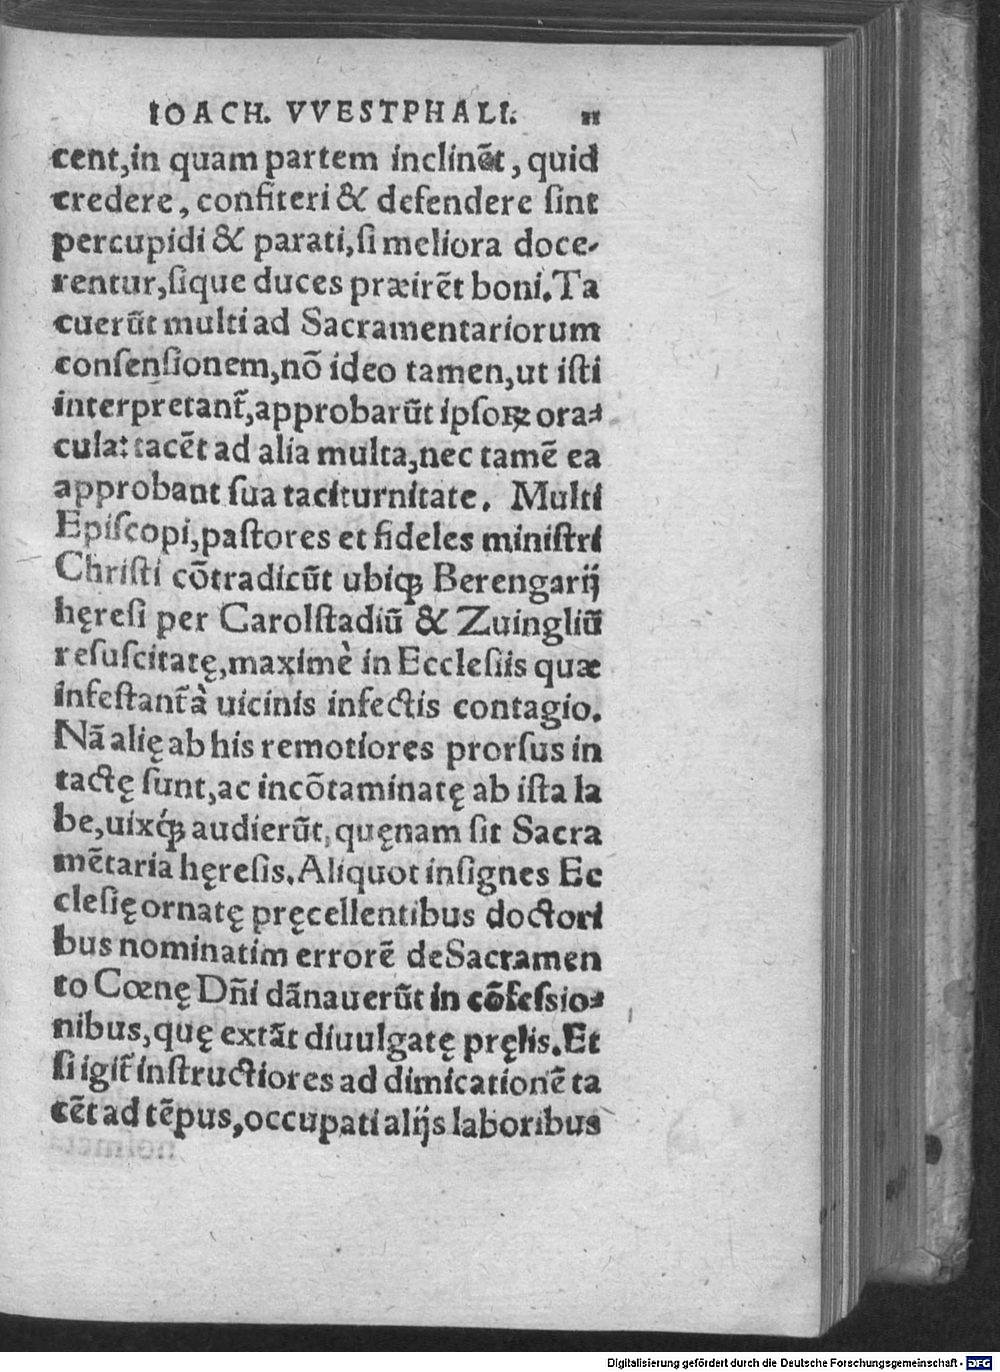 IOACH. VVESTPHALI. 21
cent,in quam partem inclinẽt, quid
credere, confiteri & defendere ſint
percupidi & parati,ſi meliora doce-
rentur,ſique duces præirẽt boni.Ta
cuerũt multi ad Sacramentariorum
conſenſionem,nõ ideo tamen,ut iſti
interpretant᷑,approbarũt ipſoꝝ ora-
cula: tacẽt ad alia multa,nec tamẽ ea
approbant ſua taciturnitate. Multi
Epiſcopi,paſtores et fideles miniſtri
Chriſti cõtradicũt ubiqꝫ Berengarij
hęreſi per Carolſtadiũ & Zuingliũ
reſuſcitatę,maximè in Eccleſiis quæ
infeſtant᷑ à uicinis infectis contagio.
Nã alię ab his remotiores prorſus in
tactę ſunt,ac incõtaminatę ab iſta la
be,uixqꝫ́ audierũt, quęnam ſit Sacra
mẽtaria hęreſis.Aliquot inſignes Ec
cleſię ornatę pręcellentibus doctori
bus nominatim errorẽ de Sacramen
to Cœnę Dñi dãnauerũt in cõfeſsio-
nibus,quę extãt diuulgatę pręlis.Et
ſi igit᷑ inſtructiores ad dimicationẽ ta
cẽt ad tẽpus,occupati alijs laboribus
Digitalisierung gefördert durch die Deutsche Forschungsgemeinschaft - DFG